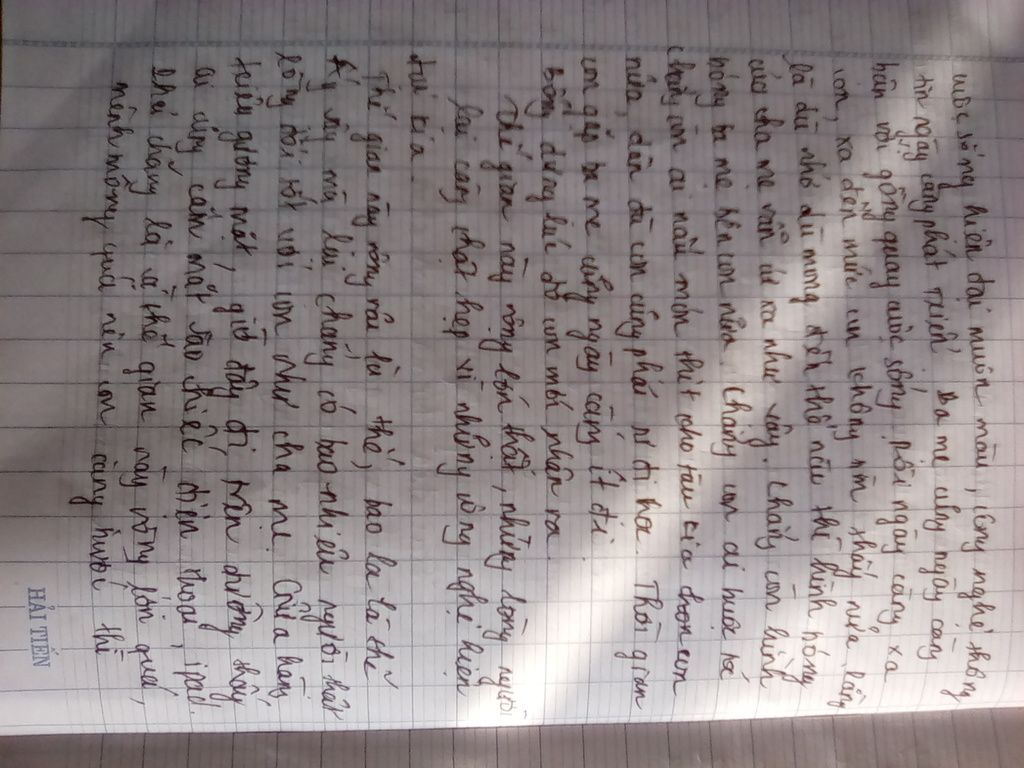 cuộc sống hiện đại muôn màu, công nghệ thông
tin ngày càng phát triển. Ba mẹ cũng ngày càng
hơn với gồng quay cuộc sống. Rồi ngày càng xa
con, xa đến mức con không nìn thấy nữa. Rằng
là dù nhớ dù mong đến thế nào thì hình bóng
của cha mẹ vẫn cứ xa như vậy. Chẳng còn hình
bóng ba mẹ bên con nữa. Chẳng còn ai
chẳng còn ai nấu món thịt cho tàu cho con
nữa, dần dà con cũng phải đi xa. Thời gian
con gặp ba mẹ cũng ngày càng ít đi.
Bỗng dưng lúc đó con mới nhận ra
Thế gian này rộng lớn thật, nhưng lòng người
lại càng chật hẹp vì những công nghệ hiện
đại kia.
Thế gian này rộng rãi là thế, bao la là thế
Ấy vậy mà lại chẳng có bao nhiêu người thật
lòng đối tốt với con như cha mẹ. Cửa hàng
tiêu gương mất, giờ đây đi trên đường thấy
ai cũng cắm mặt vào chiếc điện thoại, ipad.
Phải chăng là vì thế gian này rộng lớn quá,
mênh mông quá nên con càng thì
HẢI TIẾN